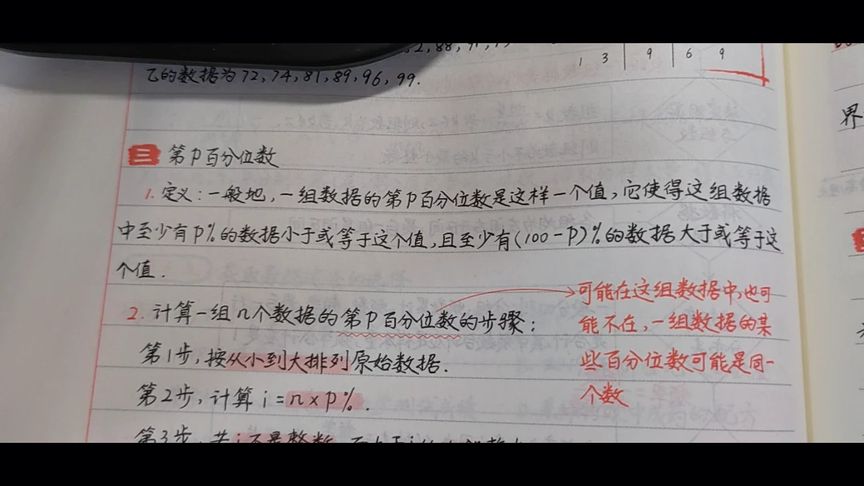 88, 91,
1 3 9 6 9
乙的数据为72,74,81,89,96,99.
三 第p百分位数
1. 定义：一般地，一组数据的第p百分位数是这样一个值，它使得这组数据
中至少有p%的数据小于或等于这个值，且至少有(100-p)%的数据大于或等于这
个值.
2. 计算一组n个数据的第p百分位数的步骤：
可能在这组数据中，也可
能不在，一组数据的某
些百分位数可能是同一
个数
第1步，按从小到大排列原始数据.
第2步，计算 i=n×p%.
第3步，若i不是整数，
界